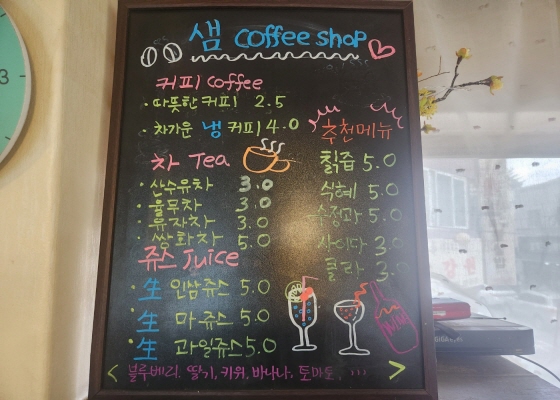 샘 coffee shop
커피 coffee
· 따뜻한 커피 2.5
· 차가운 냉 커피 4.0
차 Tea
· 산수유차 3.0
· 율무차 3.0
· 유자차 3.0
· 쌍화차 5.0
추천메뉴
칡즙 5.0
식혜 5.0
수정과 5.0
사이다 3.0
콜라 3.
쥬스 Juice
· 生 인삼쥬스 5.0
· 生 마쥬스 5.0
· 生 과일쥬스 5.0
< 블루베리, 딸기, 키위, 바나나, 토마토, ... >
3